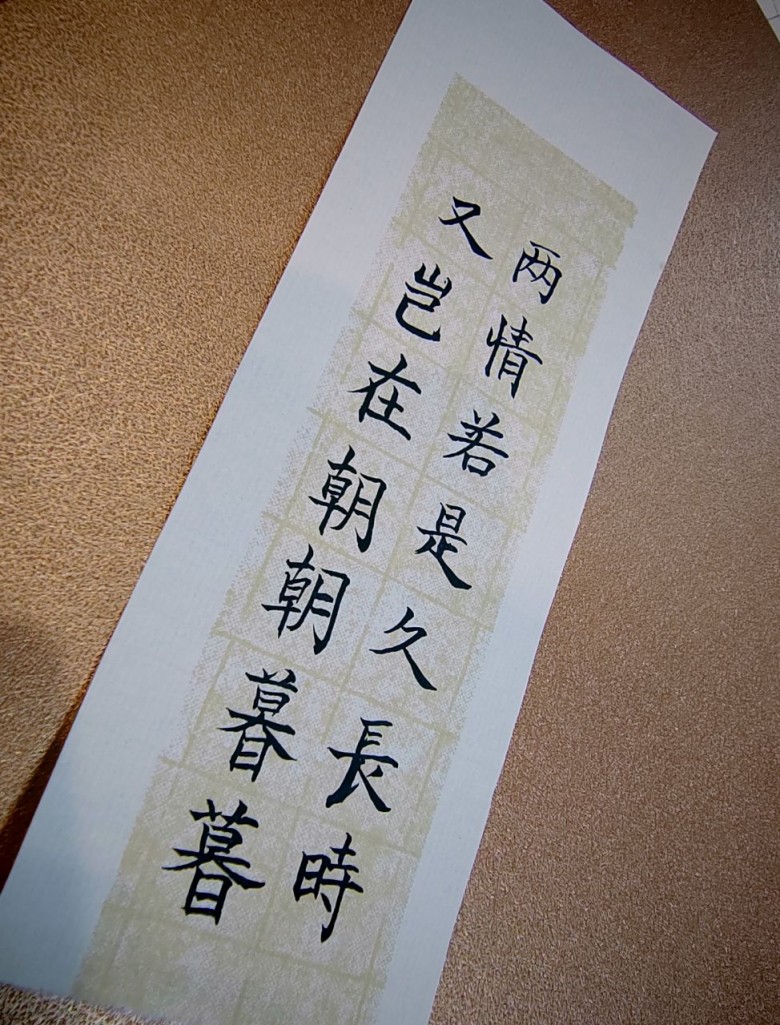 两情若是久長時
又岂在朝朝暮暮